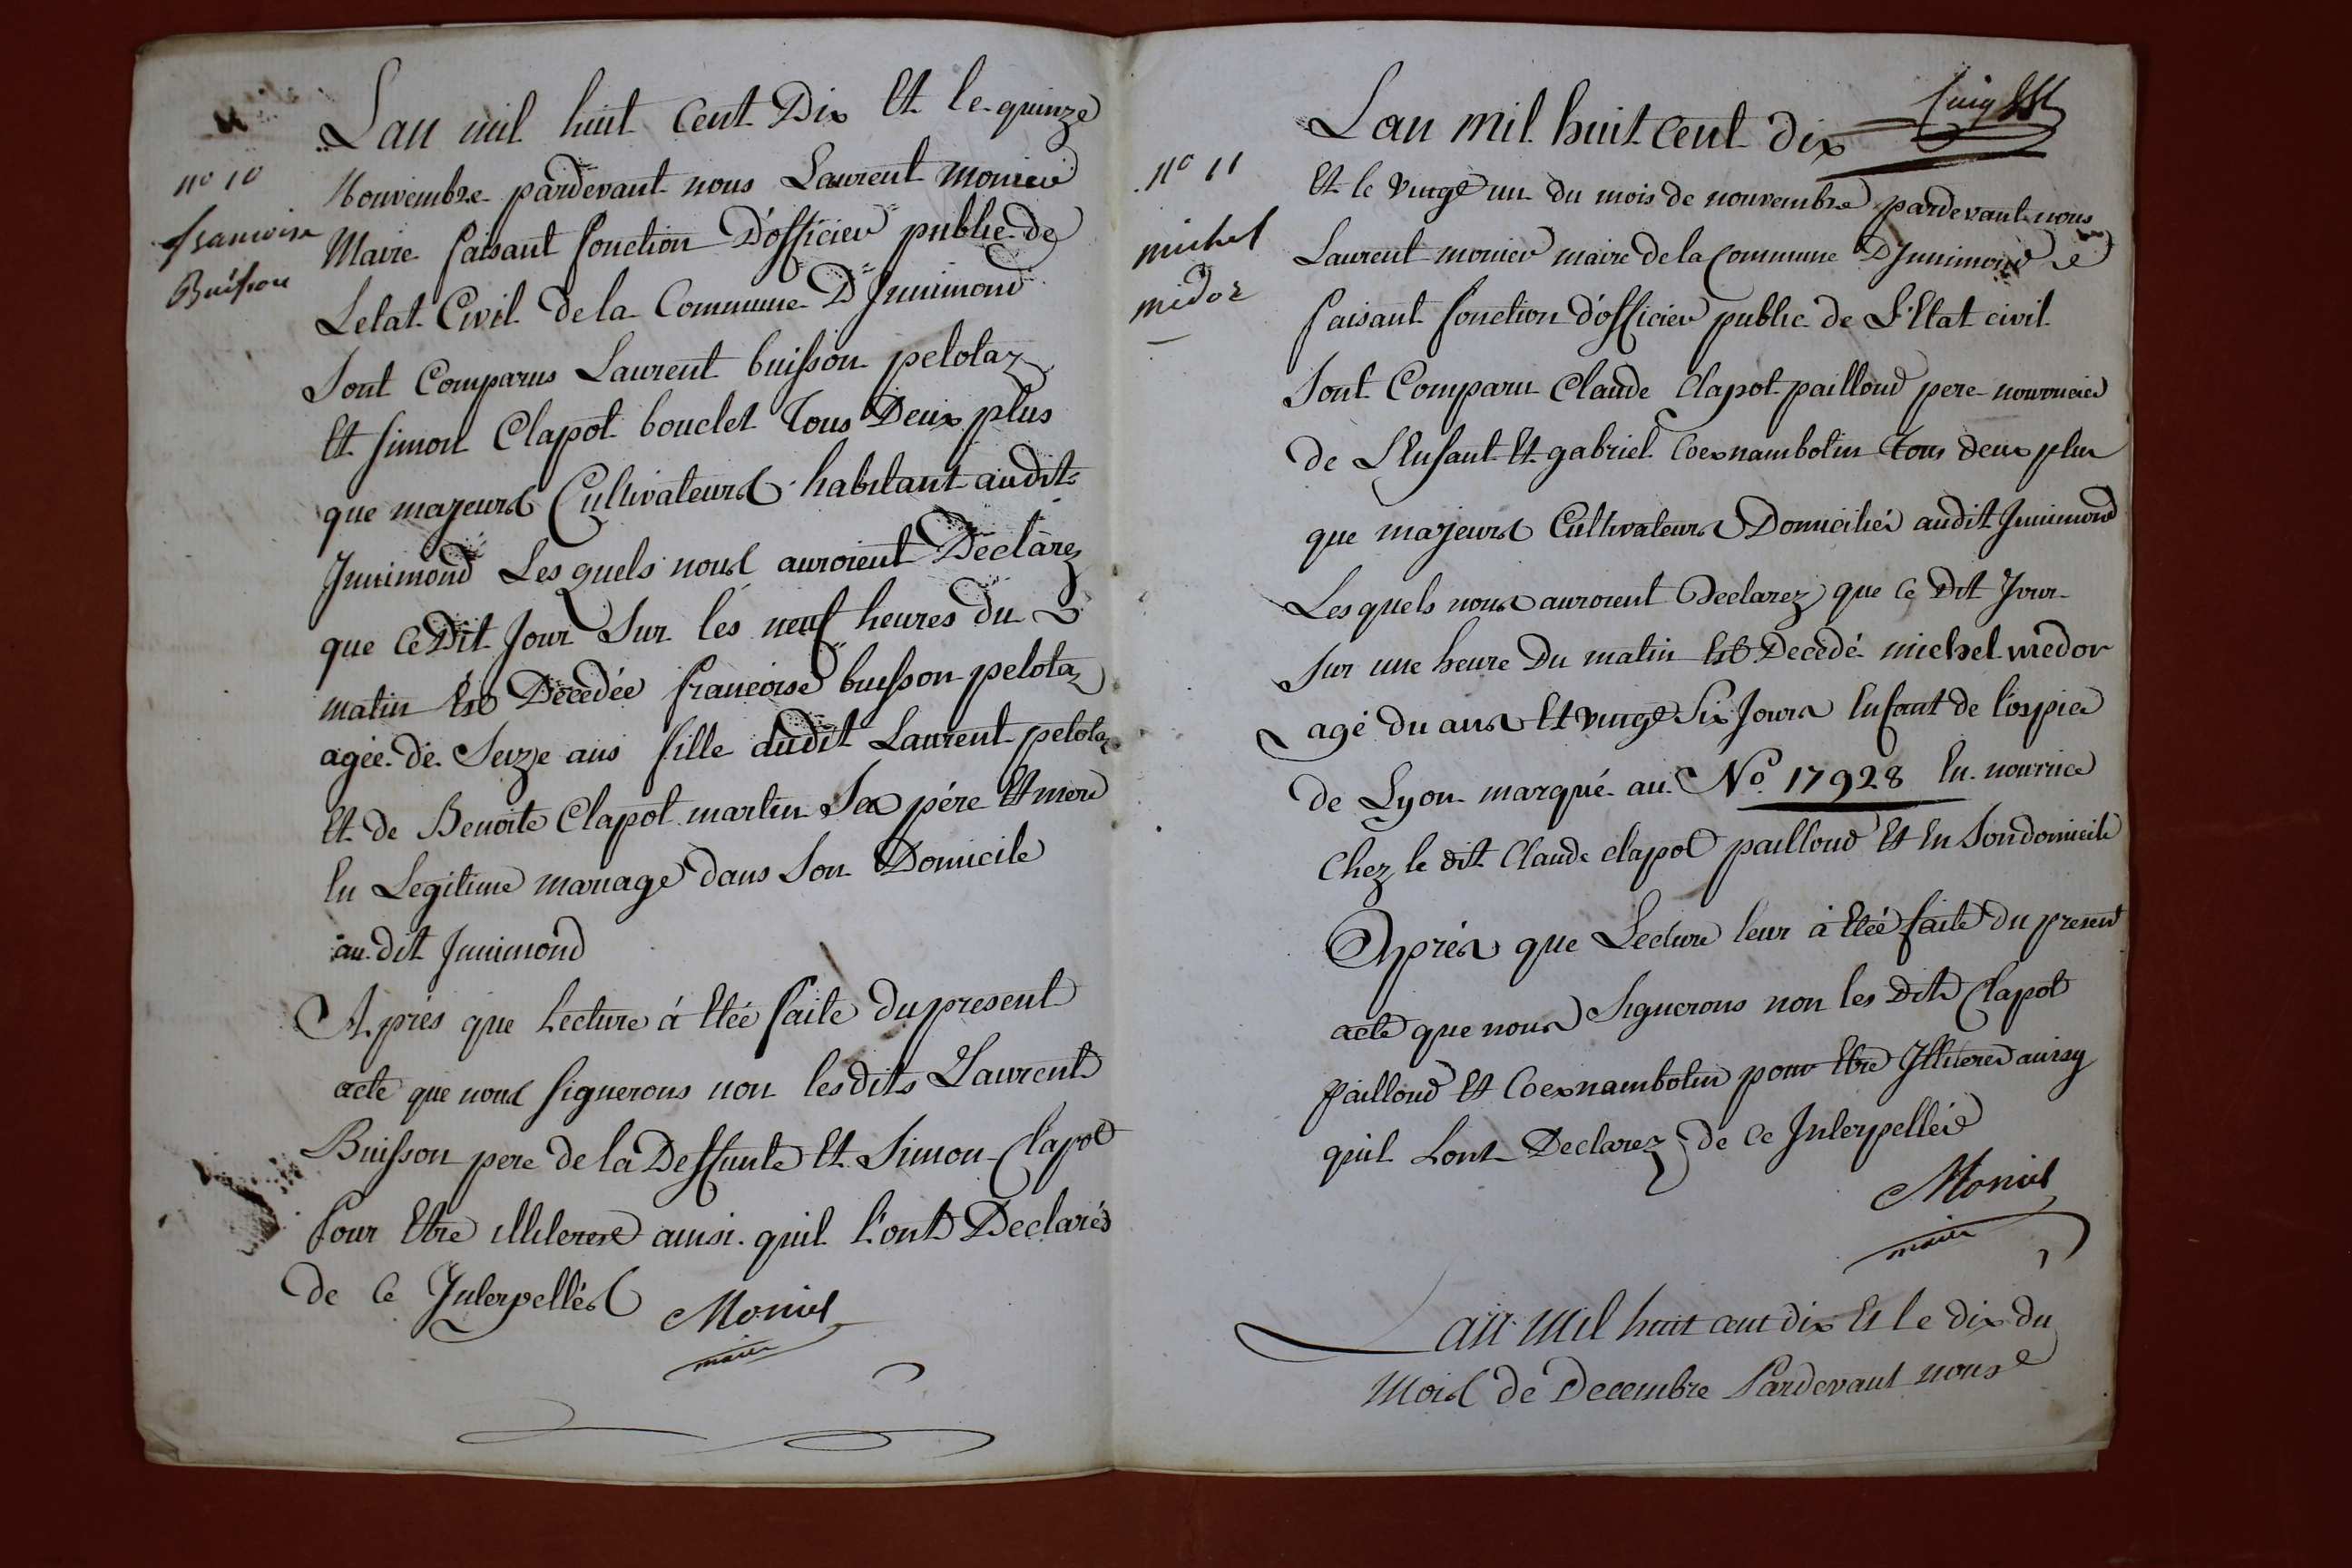 Lan mil huit Cent Dix Et le quinze
nº 10
francoise
Buisson
Nouvembre pardevant nous Laurent monier
Maire faisant fonction D'officier public de
Letat Civil de la Commune D'Innimond
Sont Comparus Laurent buisson pelotaz
Et simon Clapot bouclet Tous Deux plus
que majeurs Cultivateurs habitant audit
Innimond Les quels nous auroient Déclarez
que ce Dit Jour Sur les neuf heures du
matin Est Décedée francoise buisson pelotaz
agée de Seize ans fille dudit Laurent pelotaz
Et de Benoite Clapot martin Ses pére Et mere
En Legitime mariage dans Son Domicile
au dit Innimond
Aprés que Lecture á Etée faite du present
acte que nous signerons non lesdits Laurent
Buisson pere de la Deffunte Et Simon Clapot
Pour Etre illiteres ainsi quil l'ont Declarés
de Ce Interpellés Monier
maire
Lan mil huit Cent dix
nº 11
michel
midor
Et le vingt un du mois de nouvembre pardevant nous
Laurent monier maire de la Commune D'Innimond
faisant fonction d'officier public de L'Etat civil
Sont Comparu Claude Clapot pailloud pere nourricier
de L'Enfant Et gabriel Coexnambotin Tous deux plus
que majeurs Cultivateurs Domiciliés audit Innimond
Les quels nous auroient Declarez que Ce Dit Jour
Sur une heure Du matin Est Decedé michel medor
agé du ans Et vingt Six Jours Enfant de l'ospice
de Lyon marqué au Nº 17928 En nourrice
Chez le dit Claude clapot pailloud Et En Son domicile
Aprés que Lecture leur á Etée faite du present
acte que nous Signerons non les Dits Clapot
Pailloud Et Coexnambotin pour Etre Illiteres ainsy
quil Lont Declarez de Ce Interpellés
Monier
maire
Lan Mil huit cent dix Et le dix du
Mois de Decembre Pardevant nous